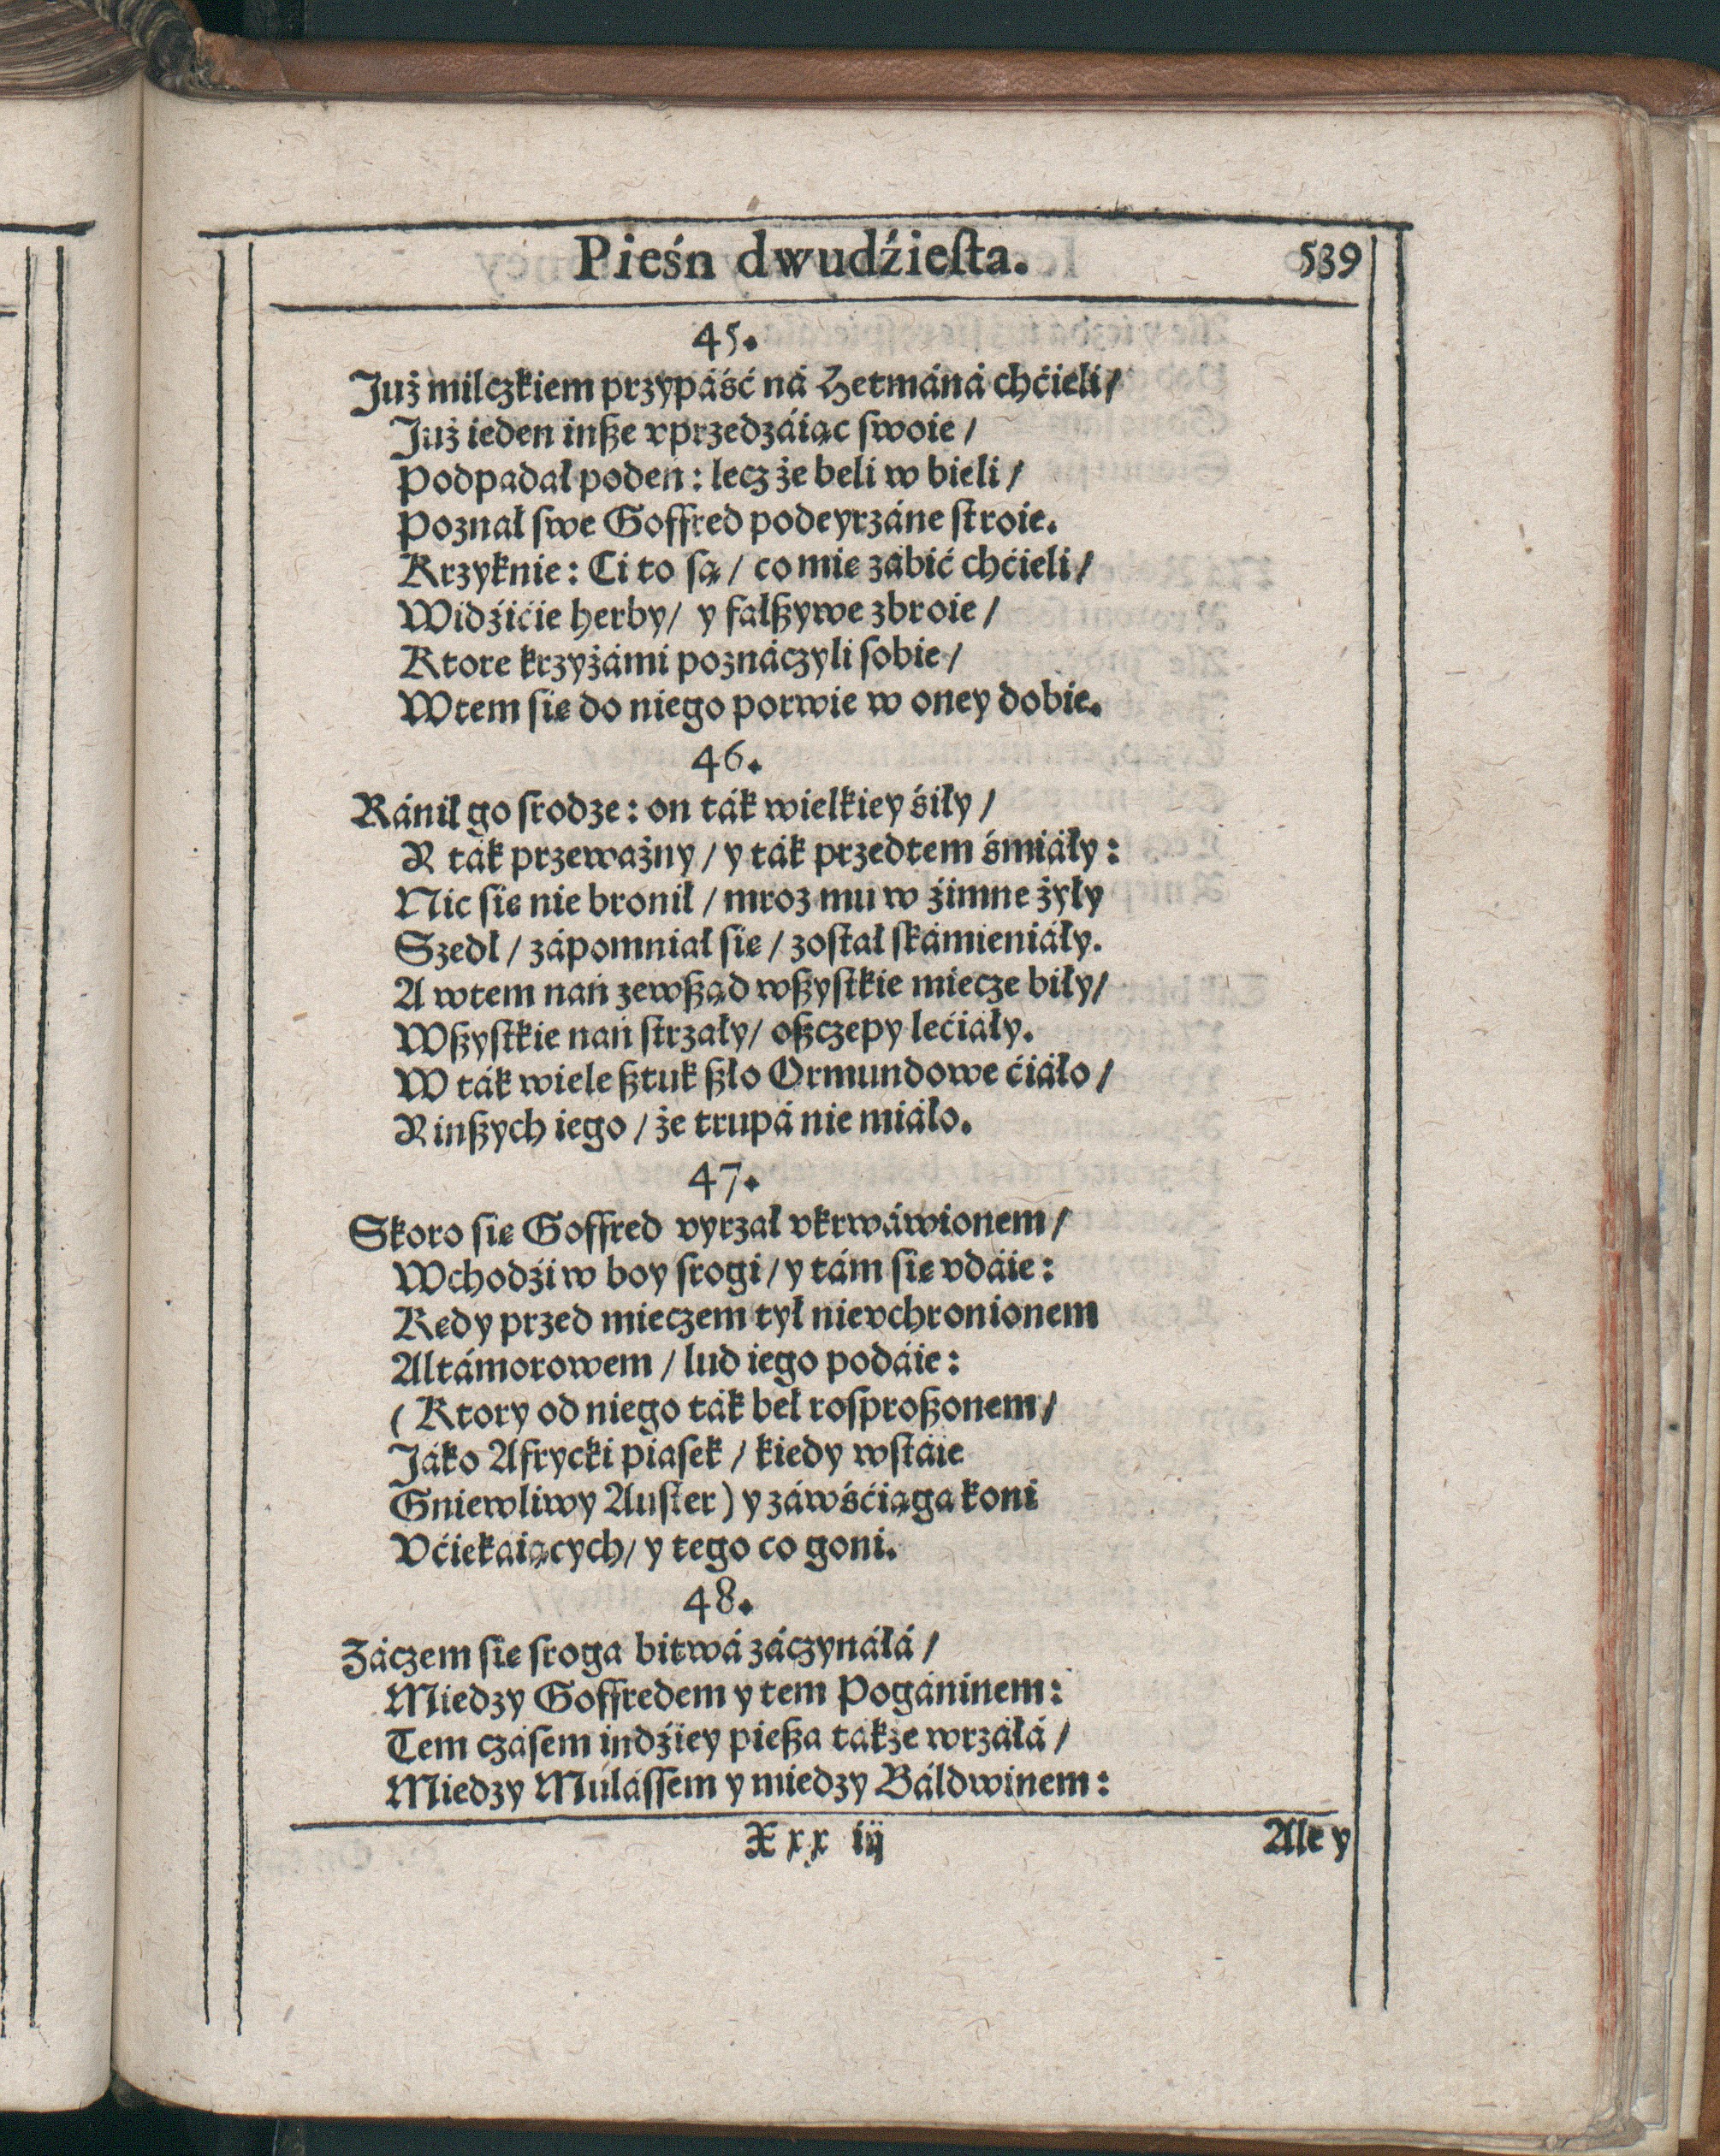 Pieśń dwudźieſta. 539
45.
Już milczkiem przypáść ná Hetmáná chćieli/
Już ieden inße vprzedzáiąc ſwoie/
Podpadał poden: lecz że beli w bieli/
Poznał ſwe Goffred podeyrzáne ſtroie.
Krzyknie: Ci to ſą/ co mie zábić chćieli/
Widźićie herby/ y fałßywe zbroie/
Ktore krzyżámi poznáczyli ſobie/
Wtem ſię do niego porwie w oney dobie.
46.
Ránił go ſrodze: on ták wielkiey śiły/
Y ták przeważny/ y ták przedtem śmiáły:
Nic ſię nie bronił/ mroz mu w źimne żyły
Szedł/ zápomniał ſię/ zoſtał ſkámieniáły.
A wtem nań zewßąd wßyſtkie miecze biły/
Wßyſtkie nań ſtrzáły/ oßczepy lećiáły.
W ták wiele ßtuk ßło Ormundowe ćiáło/
Y inßych iego/ że trupá nie miáło.
47.
Skoro ſię Goffred vyrzał vkrwáwionem/
Wchodźi w boy ſrogi/ y tám ſię vdáie:
Kędy przed mieczem tył nievchronionem
Altámorowem/ lud iego podáie:
(Ktory od niego ták beł roſproßonem/
Jáko Áfrycki piaſek/ kiedy wſtáie
Gniewliwy Auſter) y záwśćiąga koni
Vćiekaiących/ y tego co goni.
48.
Záczem ſię ſroga bitwá záczynáłá/
Miedzy Goffredem y tem Pogáninem:
Tem czáſem indźiey pießa tákże wrzáłá/
Miedzy Muláſſem y miedzy Báldwinem:
Xxx iij Ale y